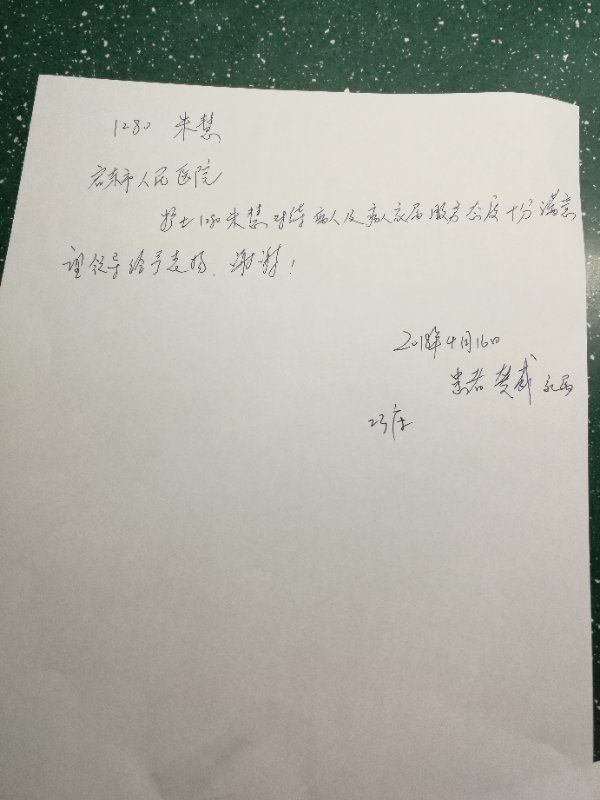 1280 朱慧
启东市人民医院
护士1280朱慧对待病人及病人家属服务态度十分满意
望领导给予表扬.谢谢!
2018年4月16日
患者 樊 家属
23床